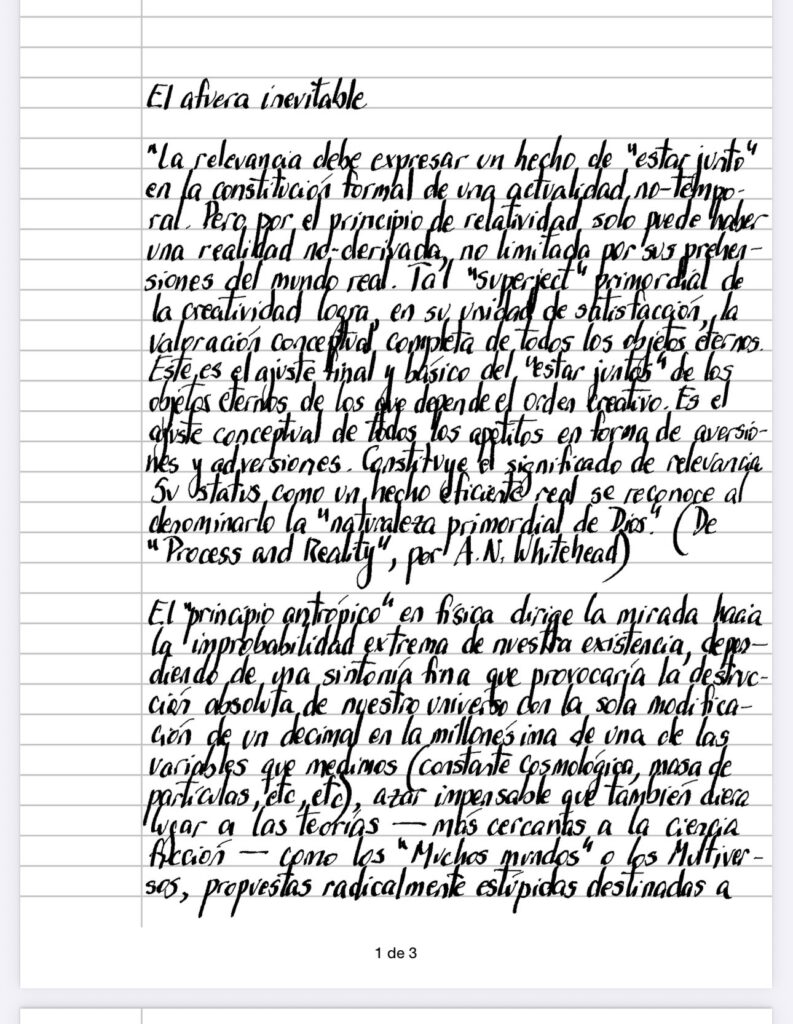 El afuera inevitable
"La relevancia debe expresar un hecho de "estar junto"
en la constitución formal de una actualidad no-tempo-
ral. Pero por el principio de relatividad solo puede haber
una realidad no-derivada, no limitada por sus prehen-
siones del mundo real. Tal "superject" primordial de
la creatividad logra, en su unidad de satisfacción, la
valoración conceptual completa de todos los objetos eternos.
Este es el ajuste final y básico del "estar juntos" de los
objetos eternos de los que depende el orden creativo. Es el
ajuste conceptual de todos los apetitos en forma de aversio-
nes y adversiones. Constituye el significado de relevancia
Su status como un hecho eficiente real se reconoce al
denominarlo la "naturaleza primordial de Dios." (De
"Process and Reality", por A.N. Whitehead)
El "principio antrópico" en física dirige la mirada hacia
la improbabilidad extrema de nuestra existencia, depen-
diendo de una sintonía fina que provocaría la destruc-
ción absoluta de nuestro universo con la sola modifica-
ción de un decimal en la millonésima de una de las
variables que medimos (constante cosmológica, masa de
partículas, etc, etc), azar impensable que también diera
lugar a las teorías — más cercanas a la ciencia
ficción — como los "Muchos mundos" o los Multiver-
sos, propuestas radicalmente estúpidas destinadas a
1 de 3